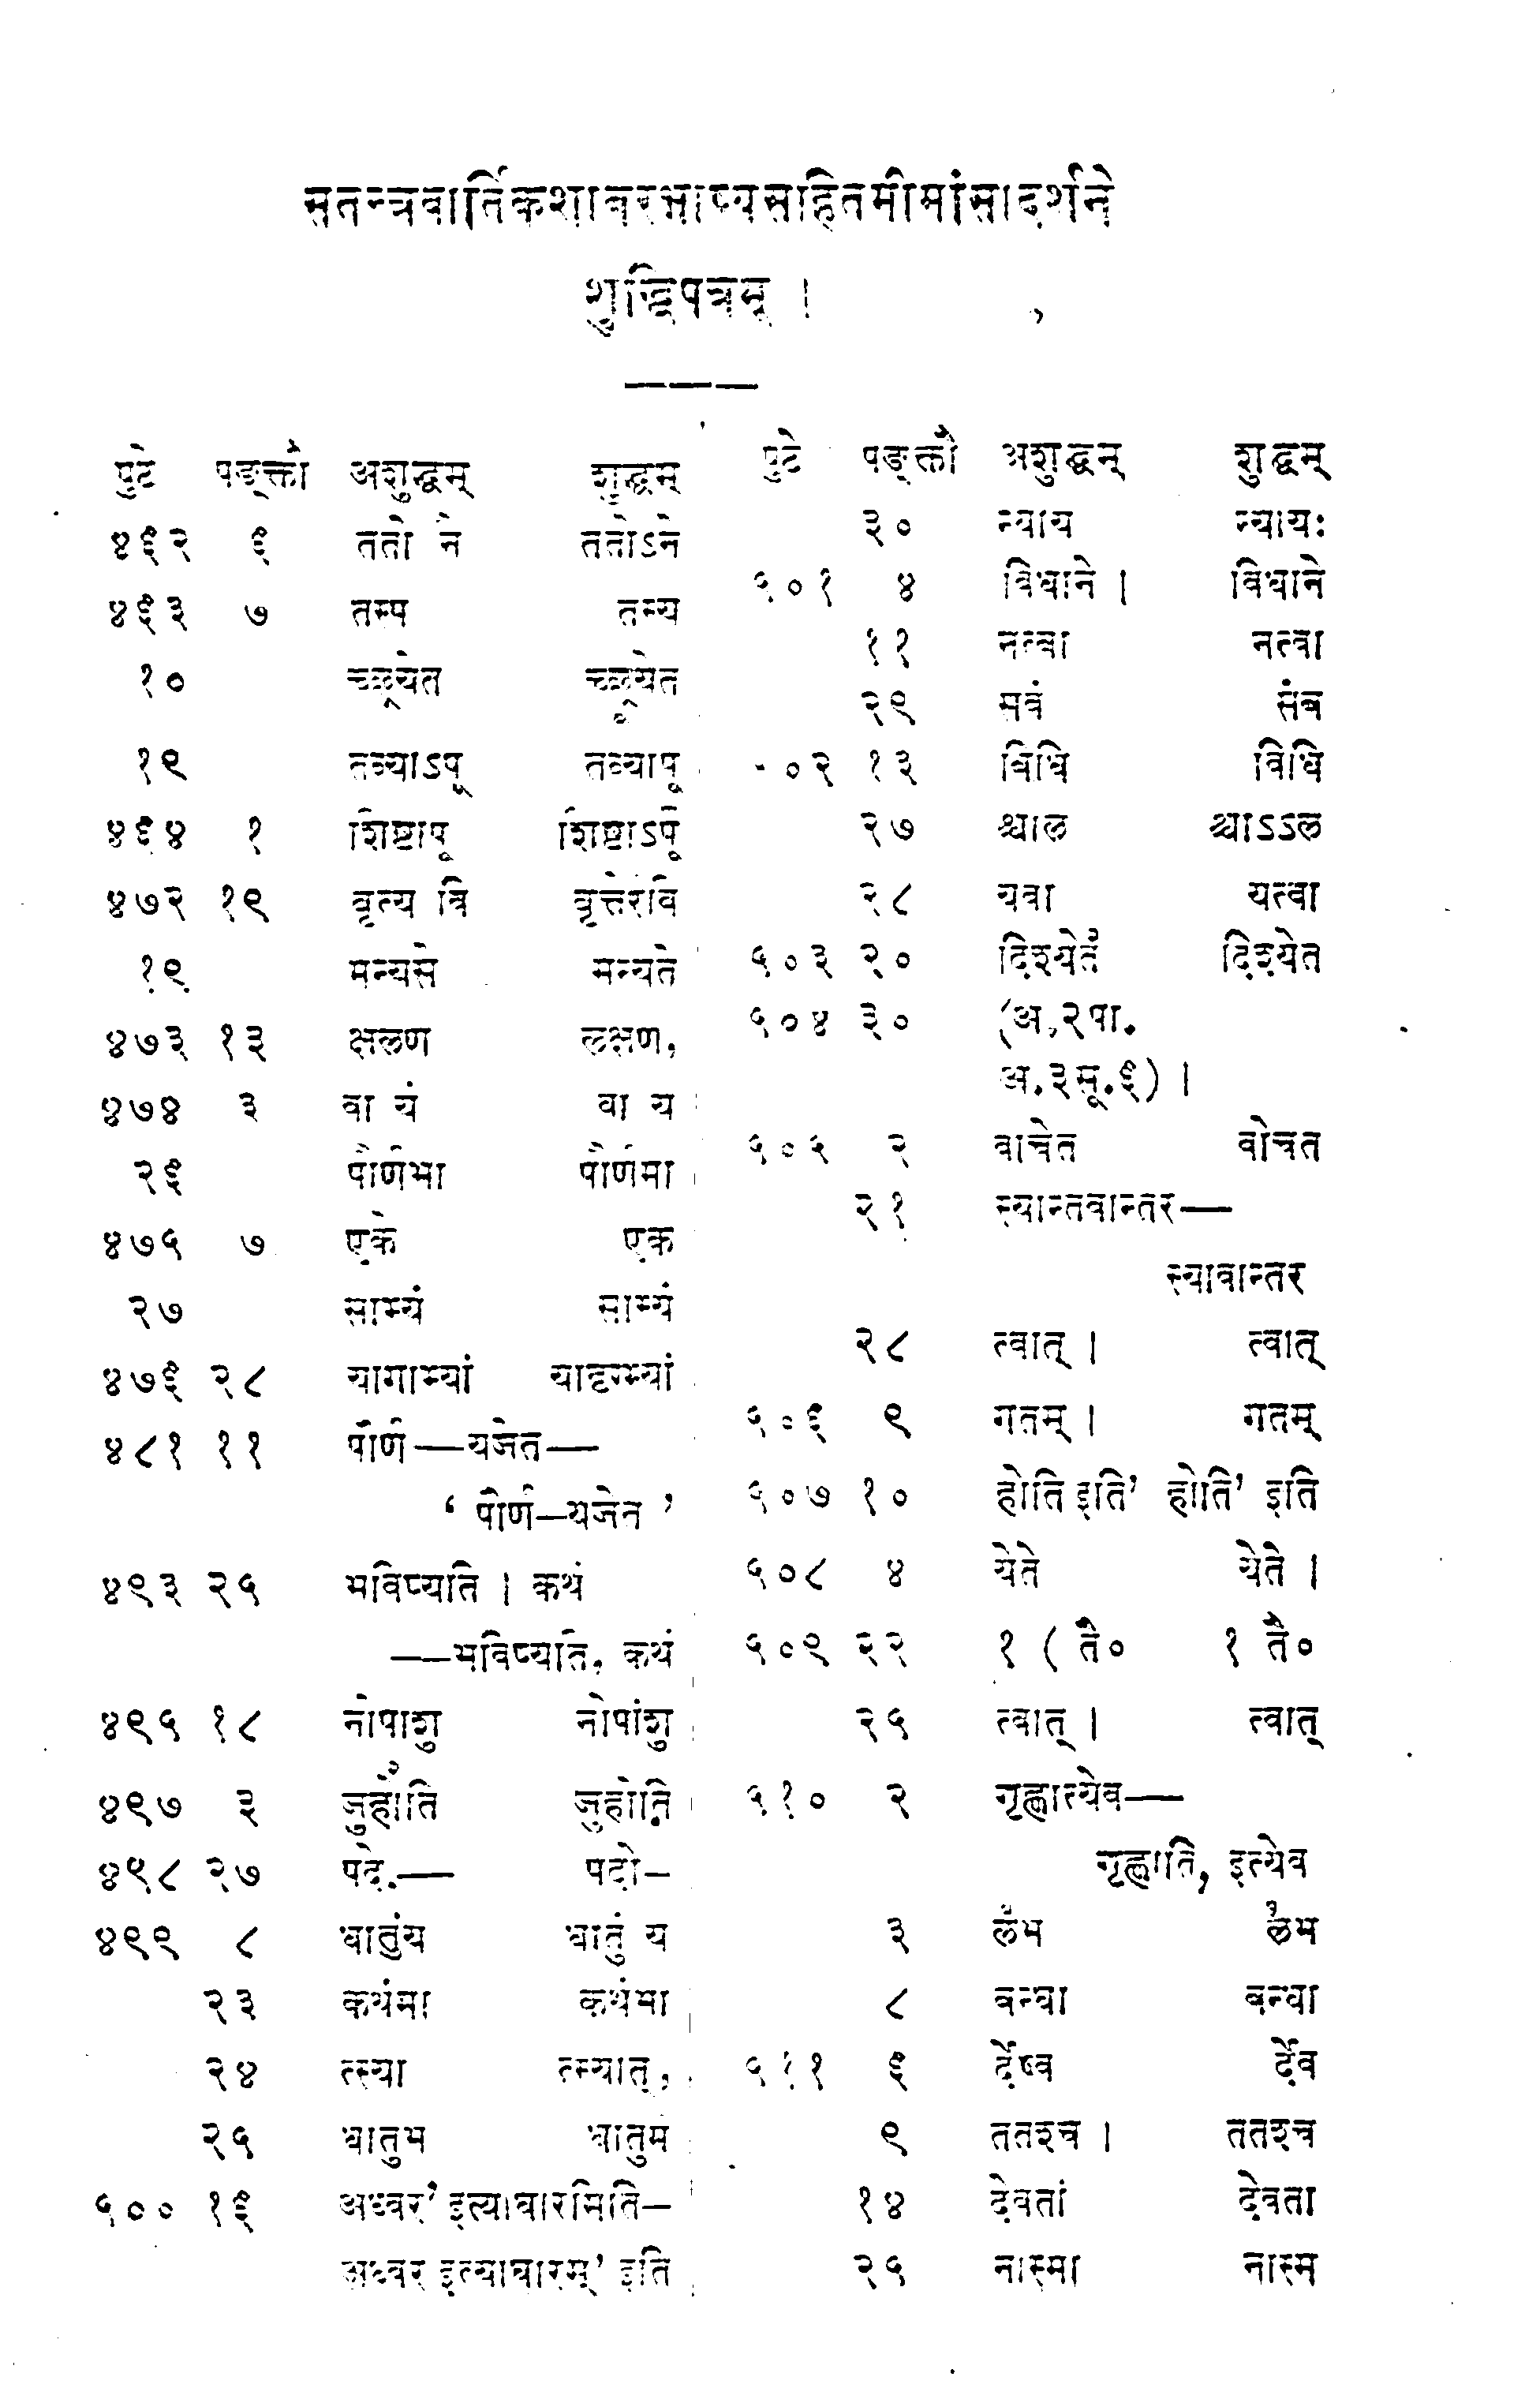 सतन्त्रवार्तिकशाबरभाष्यसहितमीमांसादर्शने
शुद्धिपत्रम् ।
पुटे पङ्क्तौ अशुद्धम् शुद्धम्
४६२ ६ ततो ने ततोऽने
४६३ ७ तस्प तस्य
१० च्छ्रयेत च्छ्रूयेत
१९ तव्याऽपू तव्यापू
४६४ १ शिष्टापू शिष्टाऽपू
४७२ १९ वृत्य वि वृत्तेरवि
१९ मन्यसे मन्यते
४७३ १३ क्षलण लक्षण,
४७४ ३ वा यं वा य
२६ पौर्णभा पौर्णमा
४७५ ७ एके एक
२७ साम्यं साम्यं
४७६ २८ यागाभ्यां यादृग्भ्यां
४८१ ११ पौर्ण—यजेत—
‘ पौर्ण—यजेत ’
४९३ २५ भविष्यति । कथं
——भविष्यति, कथं
४९५ १८ नोपाशु नोपांशु
४९७ ३ जुहोति जुहोति
४९८ २७ पदे.— पदो–
४९९ ८ धातुंय धातुं य
२३ कथंमा कथंमा
२४ त्स्या त्स्यात्,
२५ धातुभ धातुम
५०० १६ अध्वर’ इत्याघारमिति—
अध्वर इत्याघारम्’ इति
पुटे पङ्क्तौ अशुद्धम् शुद्धम्
३० न्याय न्यायः
५०१ ४ विधाने । विधाने
११ नत्वा नत्वा
२९ सवं संब
०२ १३ बिधि विधि
२७ श्चाल श्चाऽऽल
२८ यवा यत्वा
५०३ २० दिश्येतं दिश्येत
५०४ ३० (अ.२पा.
अ.३सू.६) ।
५०५ २ वाचेत वोचत
२१ स्यान्तवान्तर—
स्यावान्तर
२८ त्वात् । त्वात्
५०६ ९ गतम् । गतम्
५०७ १० होति इति’ होति’ इति
५०८ ४ येते येते ।
५०९ २२ १ ( तै० १ तै०
२५ त्वात् । त्वात्
५१० २ गृह्णात्येव—
गृह्णाति, इत्येव
३ लभ लभ
८ वन्धा बन्धा
५११ ६ र्देष्व र्देव
९ ततश्च । ततश्च
१४ देवतां देवता
२५ नास्मा नास्म